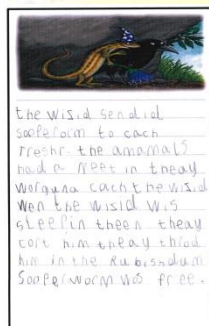 the wisid sendid
sooperworm to cach
treshr. the anamals
had a meet in theay
worguna cach the wisid
wen the wisid wis
sleepin theen theay
cort him theay throd
him in the Rubishdum
Sooperworm wos free.